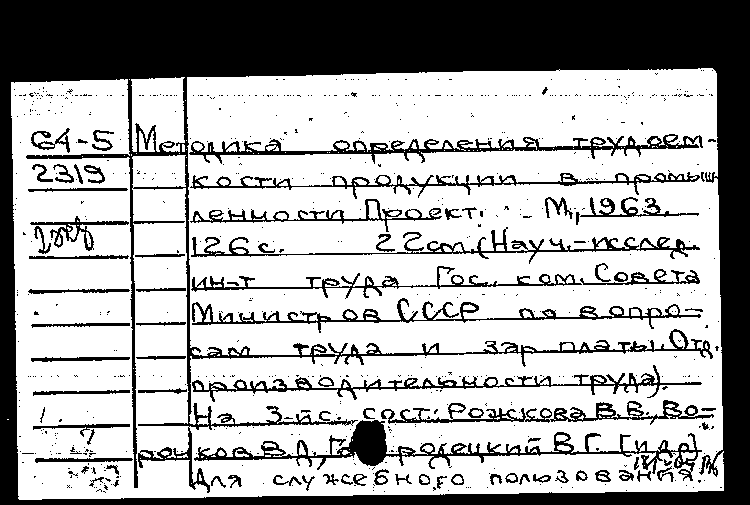 64-5 Методика определения трудоем-
2319 кости продукции в промыш
ленности Проект. - М., 1963.
126с. 22см. (Науч.-исслед.
ин-т труда Гос. ком. Совета
Министров СССР по вопро=
сам труда и зар платы. Отд.
производительности труда).
На 3-й с. сост.: Рожкова В.В., Во=
ронков В.Д., Городецкий В.Г. [и др]
Для служебного пользования.